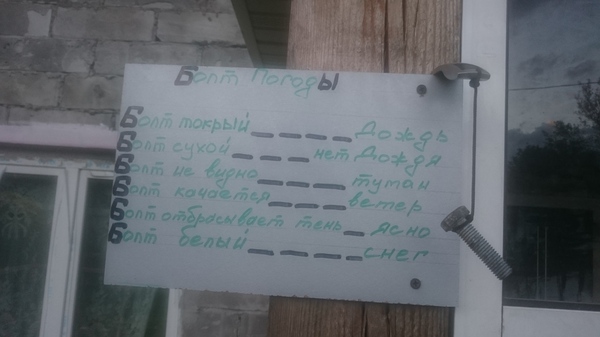 Болт Погоды
Болт мокрый _ _ _ _ Дождь
Болт сухой _ _ _ нет Дождя
Болт не видно _ _ _ туман
Болт качается _ _ _ ветер
Болт отбрасывает тень _ ясно
Болт белый _ _ _ _ снег